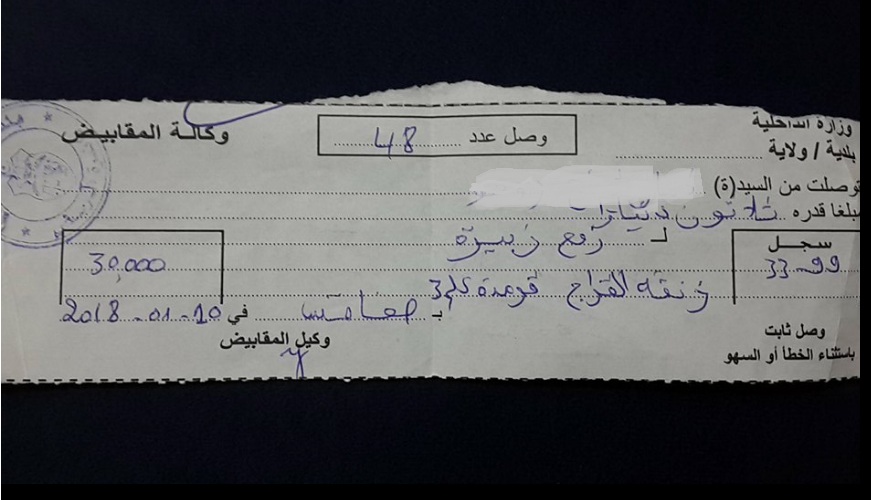 وزارة الداخلية
وكالة المقابيض
وصل عدد 48
بلدية / ولاية
توصلت من السيد(ة)
مبلغا قدره ثلاثون دينارا
لـ رفع زبيرة
سجل
33-99
30,000
زنقة القراج قرمدة كلم 3
بـ صفاقس في 10-01-2018
وكيل المقابيض
وصل ثابت
باستثناء الخطأ أو السهو